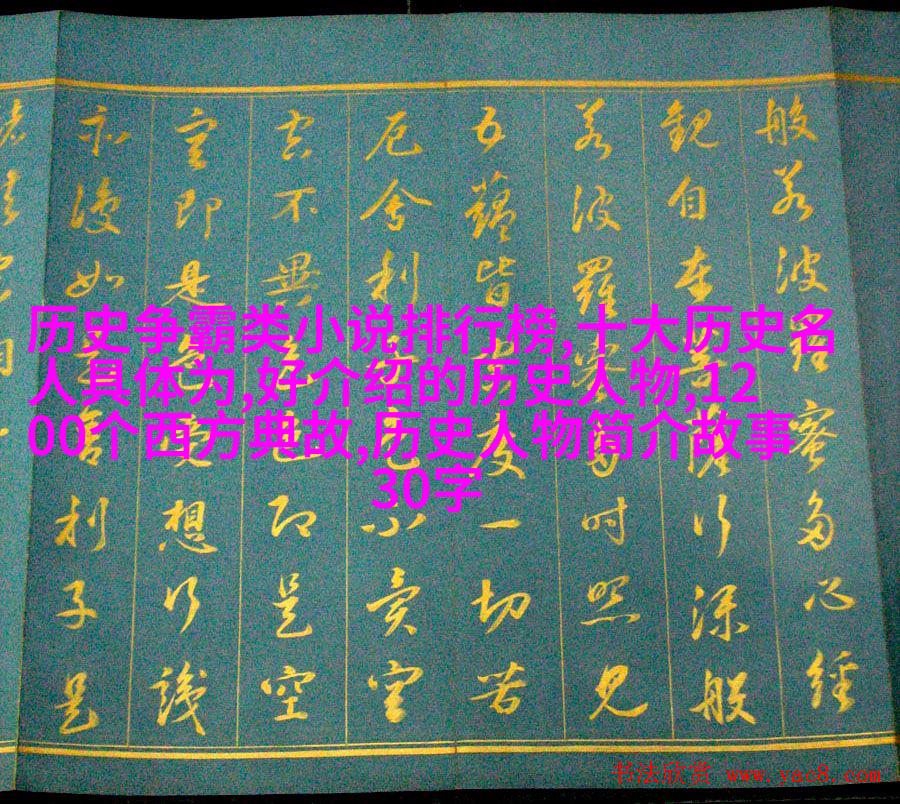 般若波羅蜜多心經
觀自在菩薩行深般
若波羅蜜多時照見
五蘊皆空度一切苦
厄舍利子色不異空
空不異色色即是空
空即是色受想行識
亦復如是舍利子是
历史争霸类小说排行榜,十大历史名
人具体为,好介绍的历史人物,12
00个西方典故,历史人物简介故事
30字
书法欣赏 www.yac8.com